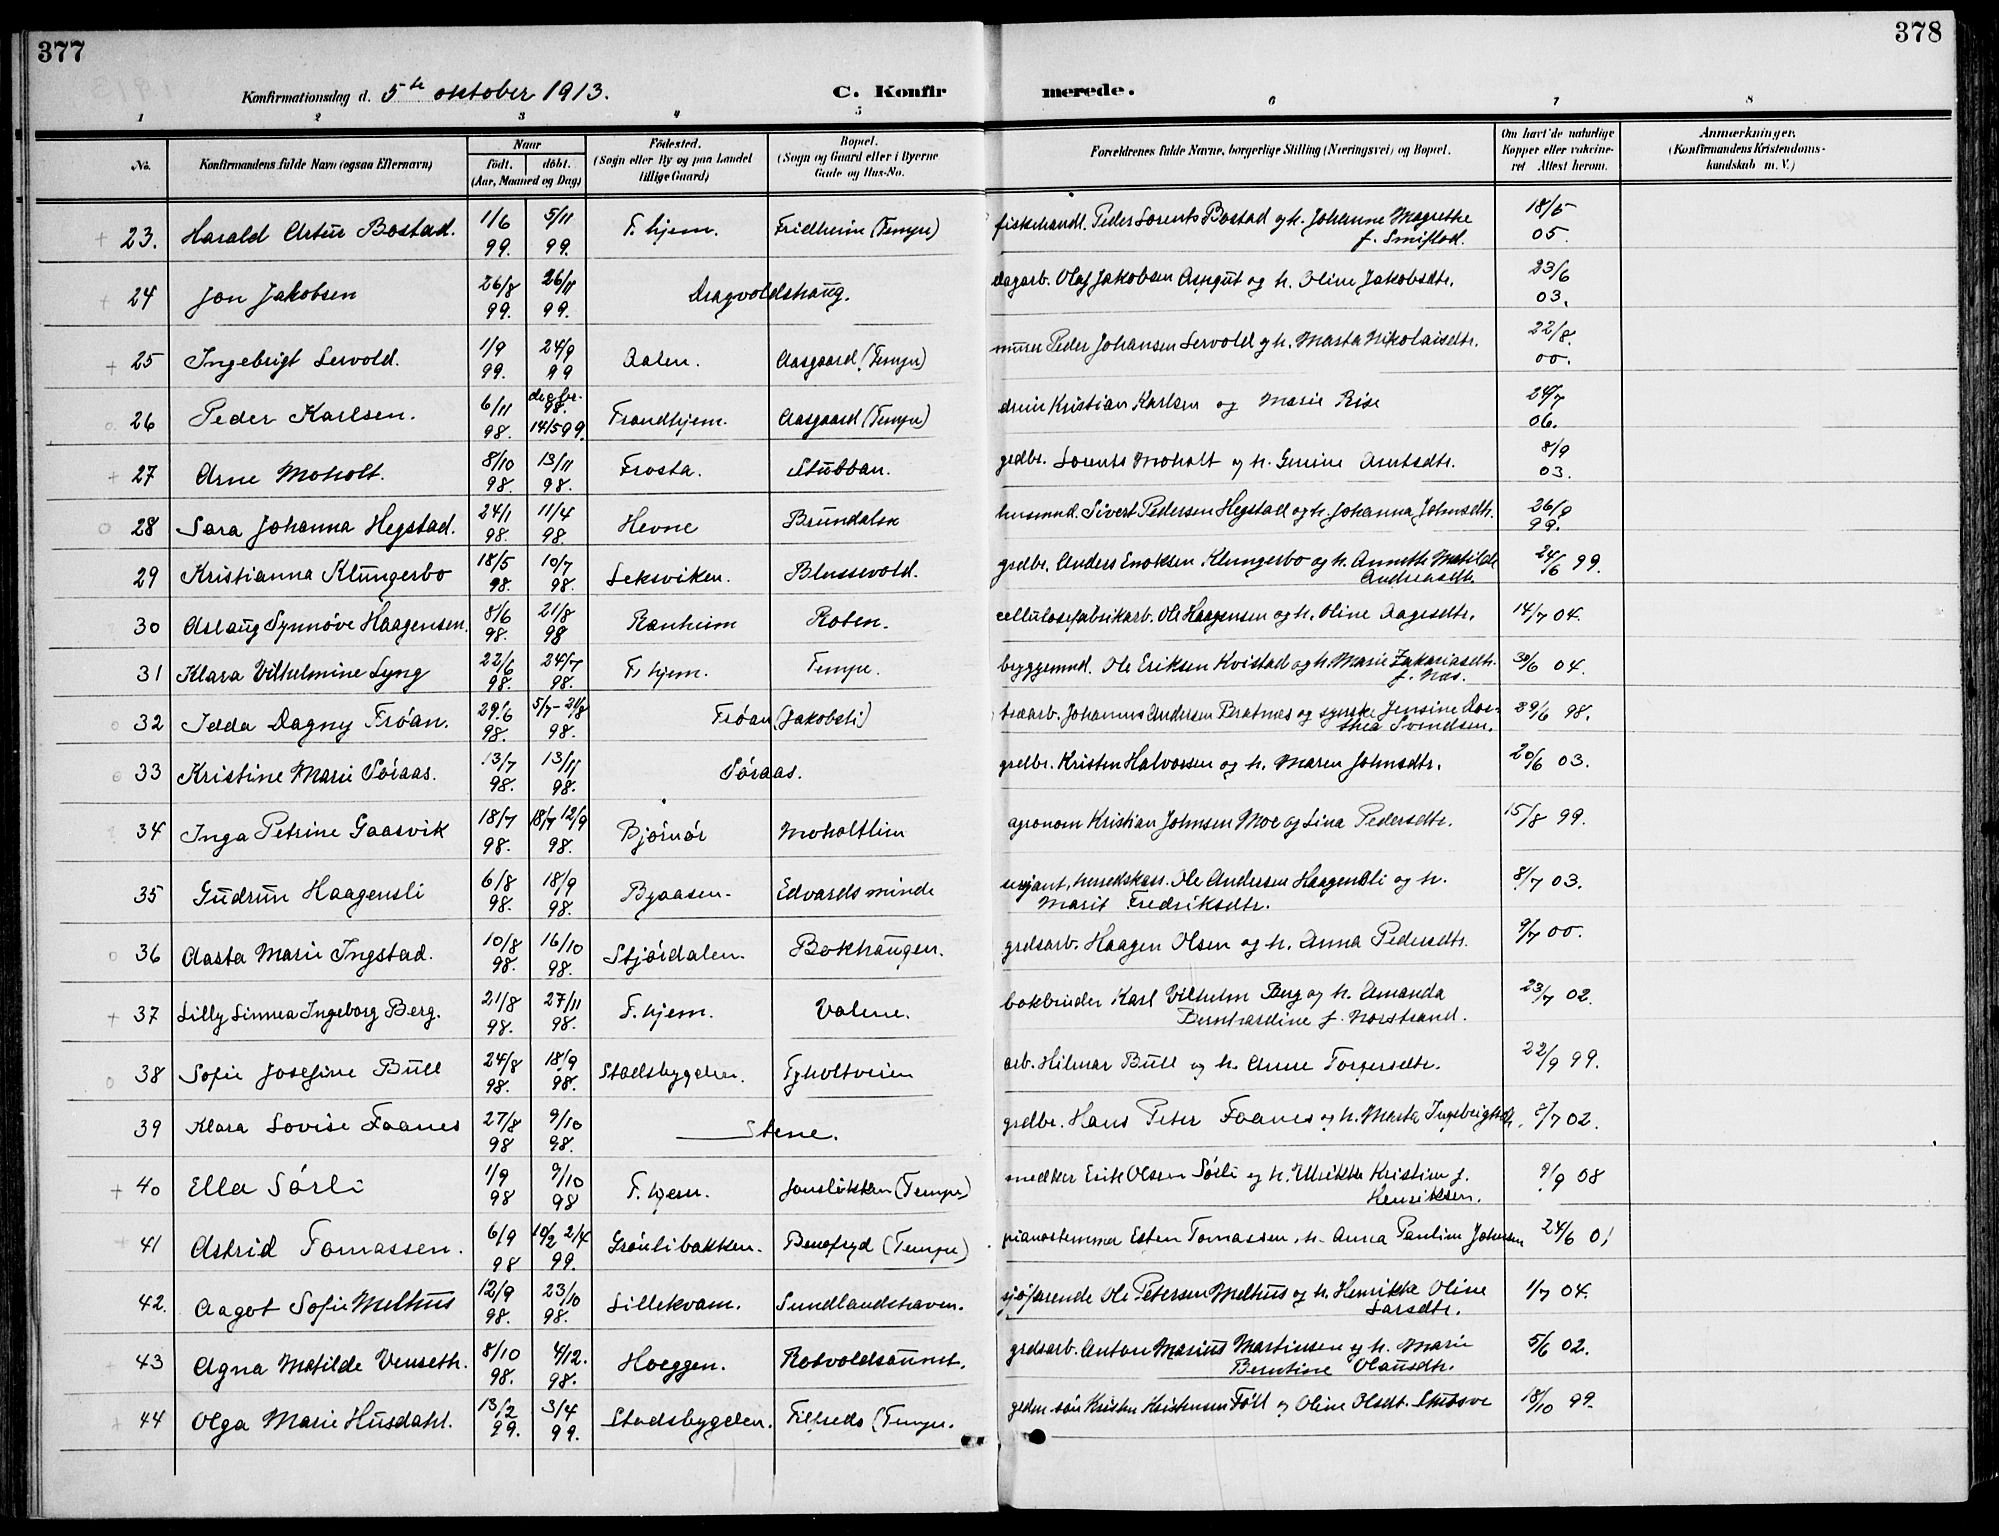 377
378
Konfirmationsdag d. 5te oktober 1913.
C. Konfir
merede.
1 2 3 4 5 6 7 8
No.
Konfirmandens fulde Navn (ogsaa Efternavn)
Naar
födt. döbt.
(Aar, Maaned og Dag)
Födested.
(Sogn eller By og paa Landet
tillige Gaard)
Bopæl.
(Sogn og Gaard eller i Byerne
Gade og Hus-No.
Forældrenes fulde Navne, borgerlige Stilling (Næringsvei) og Bopæl.
Om havt de naturlige
Kopper eller vakcine-
ret Attest herom.
Anmærkninger.
(Konfirmandens Kristendoms-
kundskab m. V.)
23. Harald Artur Bostad. 1/6 99. 5/11 99. T. hjem. Fridheim (Tempe) fiskehandl. Peder Lorents Bostad og h. Johanne Magrethe 18/5 05.
24 Jon Jakobsen 26/8 99. 26/11 99. Dragvoldshaug. dagarb. Olaf Jakobsen og h. Oline Jakobsdtr. 23/6 03.
25 Ingebrigt Lervold. 1/9 99. 24/9 99 Aalen. Aasgaard (Tempe) murer Peder Johansen Lervold og h. Marta Nikolaisdtr. 22/8. 00.
26 Peder Karlsen. 6/11 98. 98. 14/5 99. Trondhjem. Aasgaard (Tempe) Kristian Karlsen og Marie Rise 24/7 06.
27 Arne Moholt. 8/10 98. 13/11 98. Frosta. Stubban. grdbr. Lorents Moholt og h. Arntsdtr. 8/9 03.
28 Sara Johanna Hegstad. 24/1 98. 11/4 98. Hevne Brundalen husmnd. Sivert Pedersen Hegstad og h. Johanna Johnsdtr. 26/9 99.
29 Kristianna Klungerbo 18/5 98. 10/7 98. Leksviken. Blussevold. grdbr. Anders Enoksen Klungerbo og h. Annette Matilde
Andreasdtr. 24/6 99.
30 Aslaug Synnöve Haagensen. 8/6 98. 21/8 98 Ranheim Roten. cellulosefabrikarb. Ole Haagensen og h. Oline Aagesdtr. 14/7 04.
31 Klara Vilhelmine Lyng 22/6 98. 24/7 98. T. hjem. Tempe. byggemnd. Ole Eriksen Kvistad og h. Marie Zakariasdtr.
f. Næs. 30/6 04.
32 Jedda Dagny Fröan. 29/6 98. 5/7-21/8 98. Fröan (Jakobsli) Johannes Andersen Bratnes og Jensine Do-
thea Svendsen. 29/6 98.
33 Kristine Marie Söraas. 13/7 98. 13/11 98. Söraas. grdbr. Kristen Halvorsen og h. Maren Johnsdtr. 20/6 03.
34 Inga Petrine Gaasvik 18/7 98. 18/7 12/9 98. Björnör Moholtlien agronom Kristian Johnsen Moe og Lina Pedersdtr. 15/8 99.
35 Gudrun Haagensli 6/8 98. 18/9 98. Byaasen. Edvardsminde serjant, Ole Andersen Haagensli og h.
Marit Fredriksdtr. 8/7 03.
36 Aasta Marie Ingstad. 10/8 98. 16/10 98. Stjördalen. Bokhaugen. grdsarb. Haagen Olsen og h. Anna Pedersdtr. 9/7 00.
37 Lilly Linnea Ingeborg Berg. 21/8 98. 27/11 98. T. hjem. Valene. bokbinder Karl Vilhelm Berg og h. Amanda
Bernhardine f. Norstrand. 23/7 02.
38 Sofie Josefine Bull 24/8 98. 18/9 98. Stadsbygden. Tyholtveien arb. Hilmar Bull og h. Anne Torgersdtr. 22/9 99.
39 Klara Lovise Faanes 27/8 98 9/10 98. Stene. grdbr. Hans Peter Faanes og h. Marta Ingebrigtsdtr. 8/7 02.
40 Ella Sörli 1/9 98 9/10 98 T. hjem. Jonslökken (Tempe) snedker Erik Olsen Sörli og h. Ulrikke Kristine f.
Henriksen. 9/9 08
41 Astrid Tomassen. 6/9 98 10/2 2/4 99. Grönlibakken. (Tempe) pianostemmer Esten Tomassen, h. Anna Pauline Johnsen 24/6 01
42. Aagot Sofie Melhus 12/9 98. 23/10 98. Lillekvam. Sundlandshaven. sjöfarende Ole Petersen Melhus og h. Henrikke Oline
Larsdtr. 1/7 04.
43 Agna Matilde Venseth. 8/10 98. 4/12. 98. Hoeggen. Rotvoldsaunet. grdsarb. Anton Marius Martinsen og h. Marie
Berntine Olausdtr. 5/6 02.
44 Olga Marie Husdahl. 13/2 99. 3/4 99. Stadsbygden. Tilfreds (Tempe. Kristen Kristensen Föll og Oline Olsdt. 18/10 99.